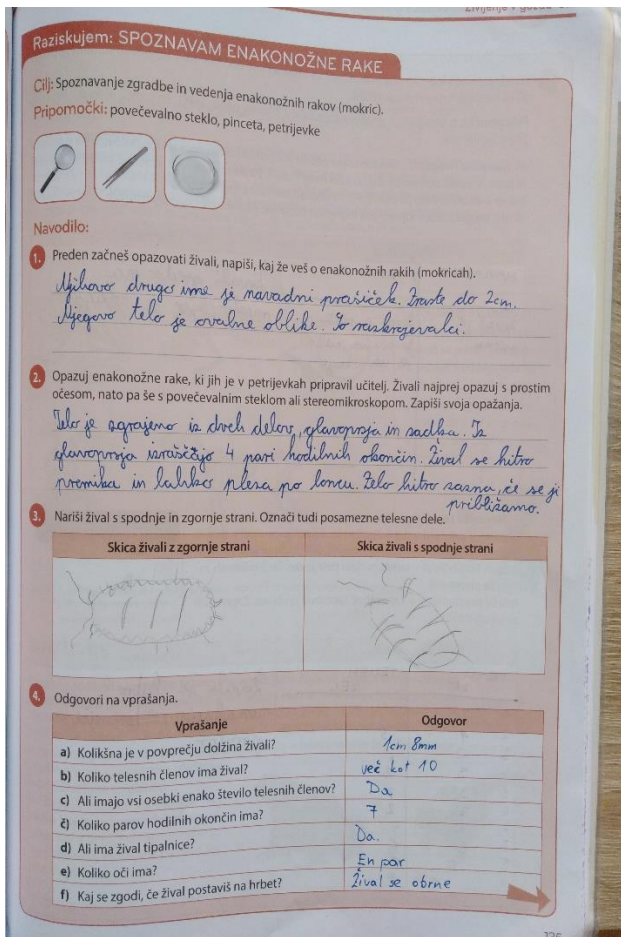 Življenje v gozdu
Raziskujem: SPOZNAVAM ENAKONOŽNE RAKE
Cilj: Spoznavanje zgradbe in vedenja enakonožnih rakov (mokric).
Pripomočki: povečevalno steklo, pinceta, petrijevke
Navodilo:
1. Preden začneš opazovati živali, napiši, kaj že veš o enakonožnih rakih (mokricah).
Njihovo drugo ime je navadni prašiček. Zraste do 2cm.
Njegovo telo je ovalne oblike. So razkrojevalci.
2. Opazuj enakonožne rake, ki jih je v petrijevkah pripravil učitelj. Živali najprej opazuj s prostim
očesom, nato pa še s povečevalnim steklom ali stereomikroskopom. Zapiši svoja opažanja.
Telo je zgrajeno iz dveh delov, glavoprsja in zadka. Iz
glavoprsja izraščajo 4 pari hodilnih okončin. Žival se hitro
premika in lahko pleza po loncu. Zelo hitro zazna, če se ji
približamo.
3. Nariši žival s spodnje in zgornje strani. Označi tudi posamezne telesne dele.
Skica živali z zgornje strani Skica živali s spodnje strani
4. Odgovori na vprašanja.
Vprašanje Odgovor
a) Kolikšna je v povprečju dolžina živali? 1cm 8mm
b) Koliko telesnih členov ima žival? več kot 10
c) Ali imajo vsi osebki enako število telesnih členov? Da
č) Koliko parov hodilnih okončin ima? 7
d) Ali ima žival tipalnice? Da.
e) Koliko oči ima? En par
f) Kaj se zgodi, če žival postaviš na hrbet? Žival se obrne